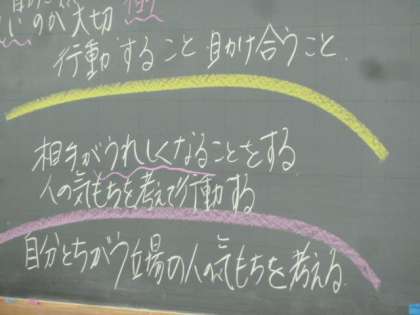 しいのが大切
行動すること 助け合うこと.
相手がうれしくなることをする
人の気もちを考えて行動する
自分とちがう立場の人の気もちを考える.